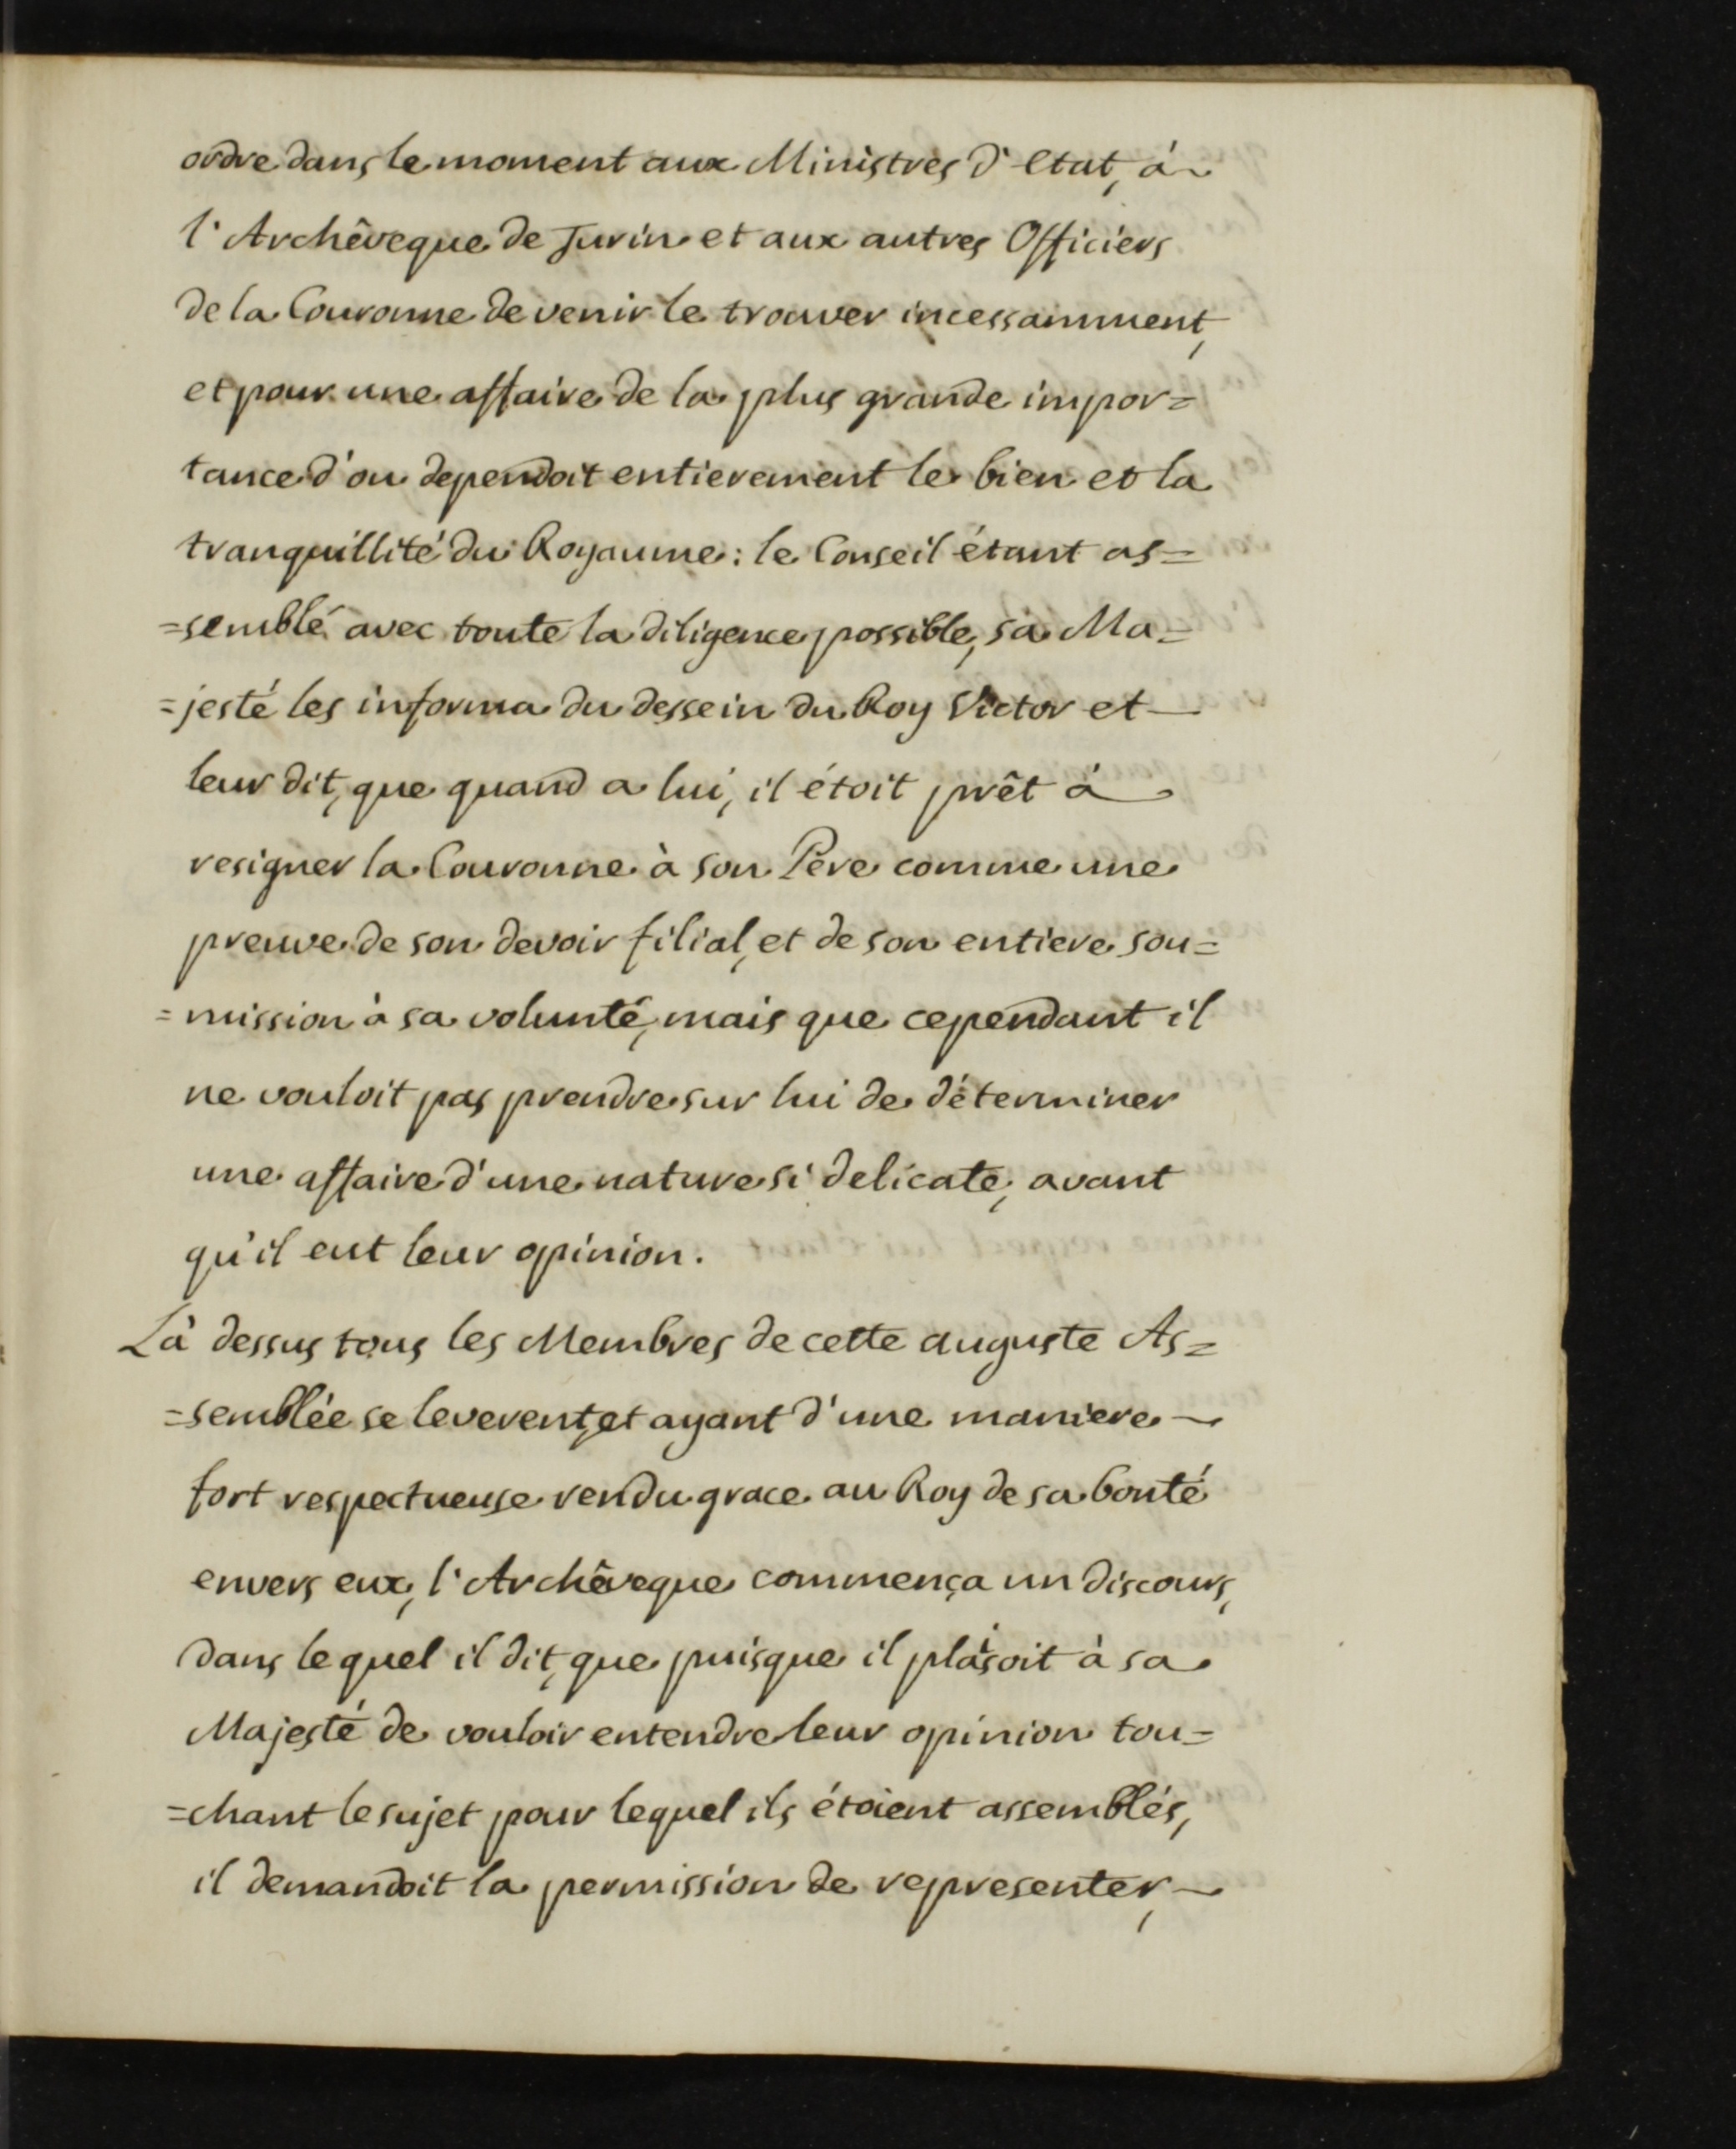 ordre dans le moment aux Ministres d'Etat, à
l'Archêveque de Turin et aux autres Officiers
de la Couronne de venir le trouver incessamment,
et pour une affaire de la plus grande impor=
tance d'ou dependoit entierement le bien et la
tranquillité du Royaume: le Conseil étant as=
=semblé avec toute la diligence possible, sa Ma=
=jesté les informa du dessein du Roy Victor et
leur dit, que quand a lui, il étoit prêt à
resigner la Couronne à son Pere comme une
preuve de son devoir filial, et de son entiere sou=
=mission à sa volunté, mais que cependant il
ne vouloit pas prendre sur lui de déterminer
une affaire d'une nature si delicate, avant
qu'il eut leur opinion.
Là dessus tous les Membres de cette auguste As=
=semblée se leverent, et ayant d'une maniere
fort respectueuse rendu grace au Roy de sa bonté
envers eux, l'Archêveque commença un discours,
dans le quel il dit, que puisque il plaisoit à sa
Majesté de vouloir entendre leur opinion tou=
=chant le sujet pour lequel ils étoient assemblés,
il demandoit la permission de representer,